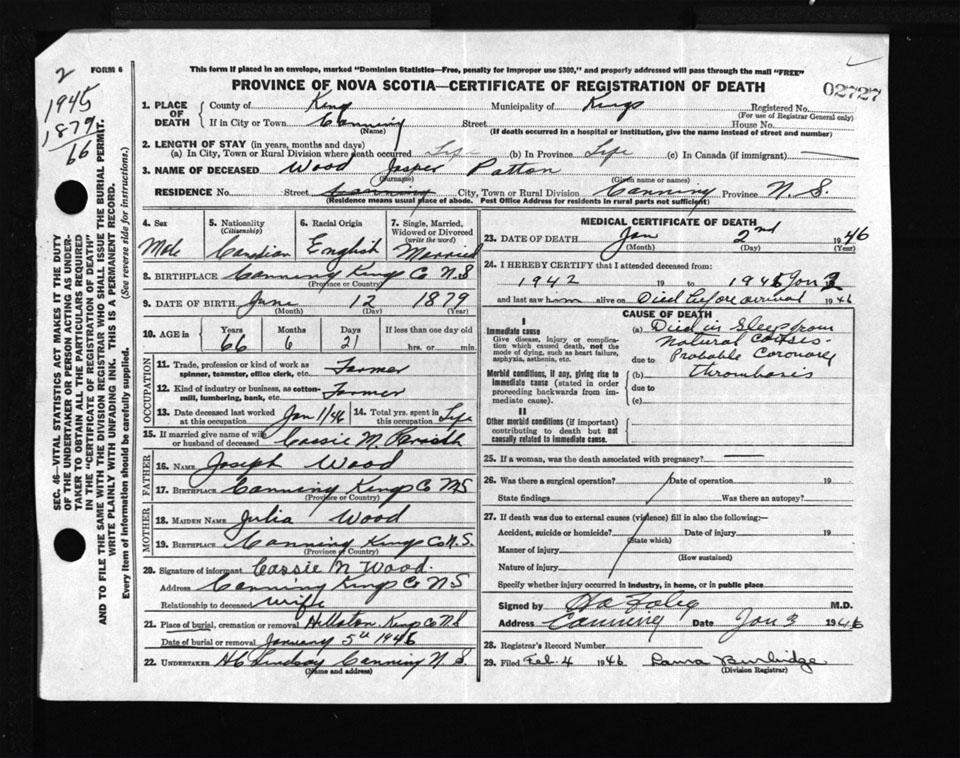 2
FORM 6
This form if placed in an envelope, marked "Dominion Statistics—Free, penalty for improper use $300," and properly addressed will pass through the mail "FREE"
PROVINCE OF NOVA SCOTIA—CERTIFICATE OF REGISTRATION OF DEATH
02727
1945
1879
66
SEC. 46—VITAL STATISTICS ACT MAKES IT THE DUTY
OF THE UNDERTAKER OR PERSON ACTING AS UNDER-
TAKER TO OBTAIN ALL THE PARTICULARS REQUIRED
IN THE "CERTIFICATE OF REGISTRATION OF DEATH"
AND TO FILE THE SAME WITH THE DIVISION REGISTRAR WHO SHALL ISSUE THE BURIAL PERMIT.
WRITE PLAINLY WITH UNFADING INK. THIS IS A PERMANENT RECORD.
Every item of information should be carefully supplied. (See reverse side for instructions.)
1. PLACE OF DEATH County of King Municipality of Kings Registered No.
(For use of Registrar General only)
If in City or Town Canning Street House No.
(Name) (If death occurred in a hospital or institution, give the name instead of street and number)
2. LENGTH OF STAY (in years, months and days)
(a) In City, Town or Rural Division where death occurred Life (b) In Province Life (c) In Canada (if immigrant)
3. NAME OF DECEASED Wood Jasper Patton
(Surname) (Given name or names)
RESIDENCE No. Street Canning City, Town or Rural Division Canning Province N. S.
(Residence means usual place of abode. Post Office Address for residents in rural parts not sufficient)
4. Sex Male
5. Nationality (Citizenship) Canadian
6. Racial Origin English
7. Single, Married, Widowed or Divorced (write the word) Married
8. BIRTHPLACE Canning Kings Co N.S
(Province or Country)
9. DATE OF BIRTH June 12 1879
(Month) (Day) (Year)
10. AGE in Years 66 Months 6 Days 21 If less than one day old hrs. or min.
OCCUPATION
11. Trade, profession or kind of work as spinner, teamster, office clerk, etc. Farmer
12. Kind of industry or business, as cotton-mill, lumbering, bank, etc. Farmer
13. Date deceased last worked at this occupation Jan 1/46 14. Total yrs. spent in this occupation Life
15. If married give name of wife or husband of deceased Cassie M.
FATHER
16. NAME Joseph Wood
17. BIRTHPLACE Canning Kings Co NS
(Province or Country)
MOTHER
18. MAIDEN NAME Julia Wood
19. BIRTHPLACE Canning Kings Co N.S.
(Province or Country)
20. Signature of informant Cassie M Wood.
Address Canning Kings Co NS
Relationship to deceased wife
21. Place of burial, cremation or removal Hillaton Kings Co NS
Date of burial or removal January 5th 1946
22. UNDERTAKER H C Lindsay Canning N. S.
(Name and address)
MEDICAL CERTIFICATE OF DEATH
23. DATE OF DEATH Jan 2nd 1946
(Month) (Day) (Year)
24. I HEREBY CERTIFY that I attended deceased from:
1942 19 to 1945 Jan 2
and last saw him alive on Died before arrival 1946
CAUSE OF DEATH
I
Immediate cause
Give disease, injury or complication which caused death, not the mode of dying, such as heart failure, asphyxia, asthenia, etc.
(a) Died in sleep from
Natural Causes.
due to Probable Coronary
Morbid conditions, if any, giving rise to immediate cause (stated in order proceeding backwards from immediate cause).
(b) thrombosis
due to
(c)
II
Other morbid conditions (if important) contributing to death but not causally related to immediate cause.
25. If a woman, was the death associated with pregnancy?
26. Was there a surgical operation? Date of operation 19
State findings Was there an autopsy?
27. If death was due to external causes (violence) fill in also the following:—
Accident, suicide or homicide? Date of injury 19
(State which)
Manner of injury
(How sustained)
Nature of injury
Specify whether injury occurred in industry, in home, or in public place
Signed by M.D.
Address Canning Date Jan 3 1946
28. Registrar's Record Number
29. Filed Feb. 4 1946 Laura Burbidge
(Division Registrar)